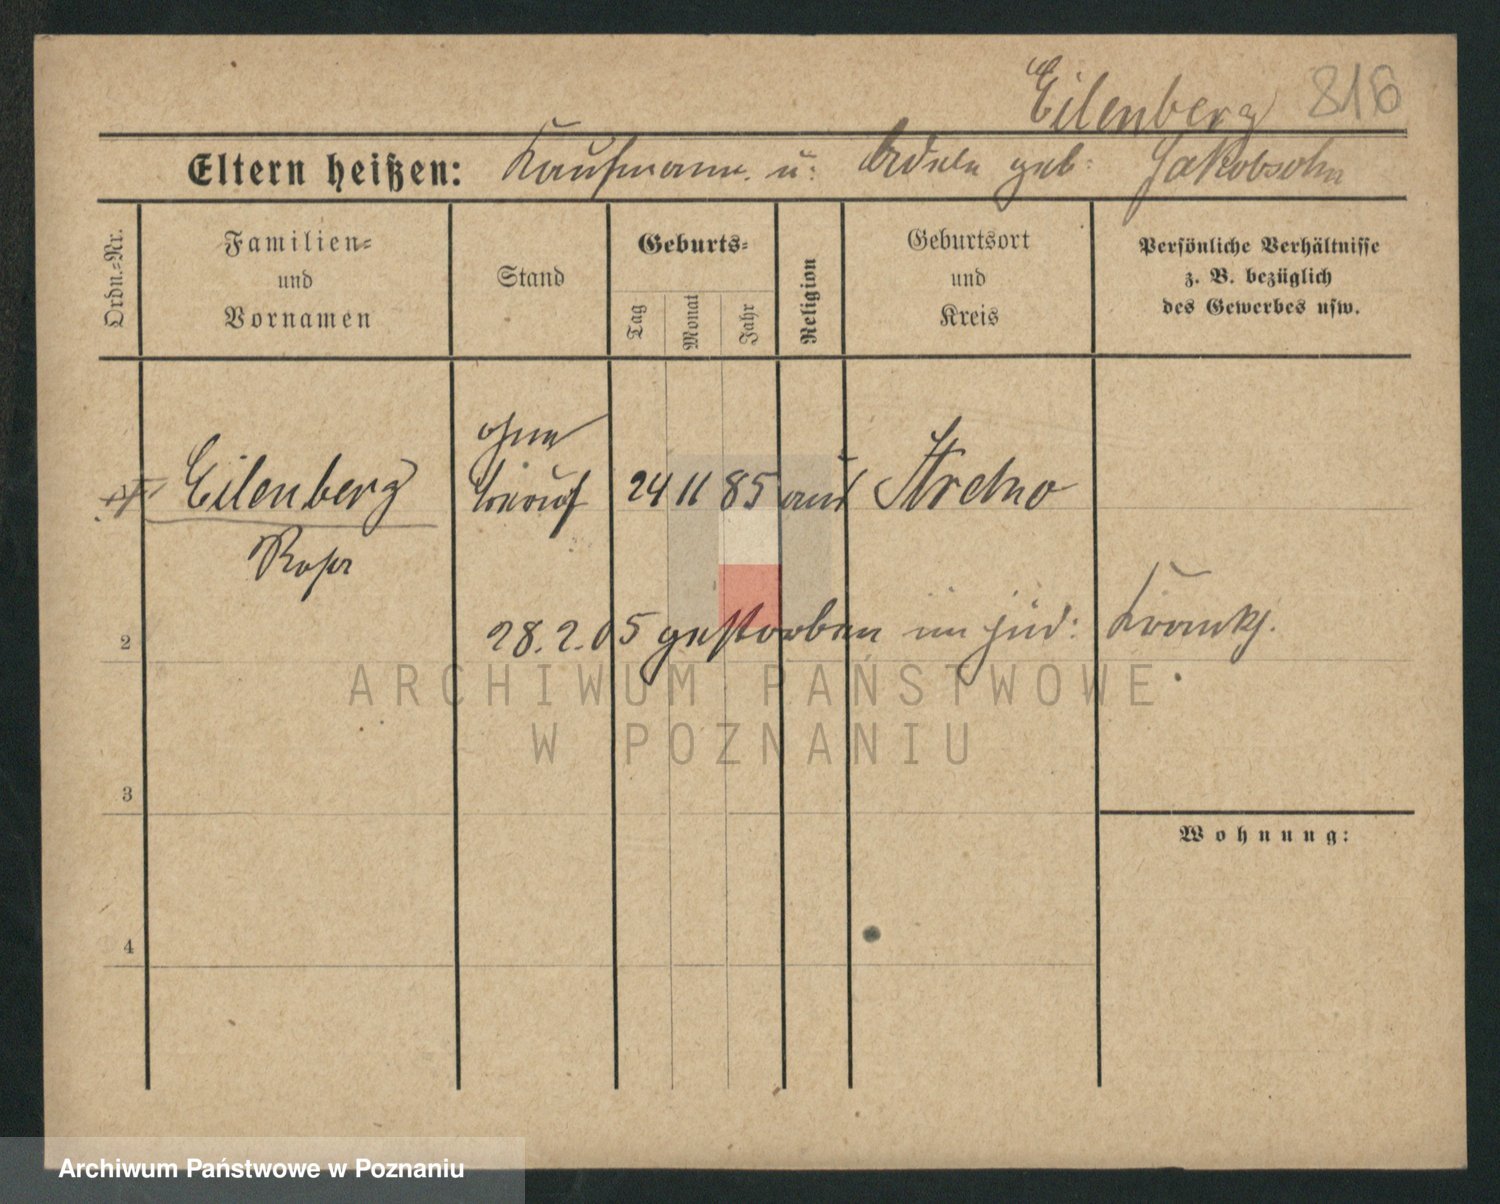 Eilenberg 816
Eltern heißen: Kaufmann u: Adele geb: Jakobsohn
Ordn.=Nr.
Familien=
und
Vornamen
Stand
Geburts=
Tag
Monat
Jahr
Religion
Geburtsort
und
Kreis
Persönliche Verhältnisse
z. B. bezüglich
des Gewerbes usw.
ohne
Eilenberg Beruf 24 11 85 Strelno
Rosa
2 28.2.05 gestorben im jüd: Krankh.
ARCHIWUM PAŃSTWOWE
W POZNANIU
3
Wohnung:
4
Archiwum Państwowe w Poznaniu